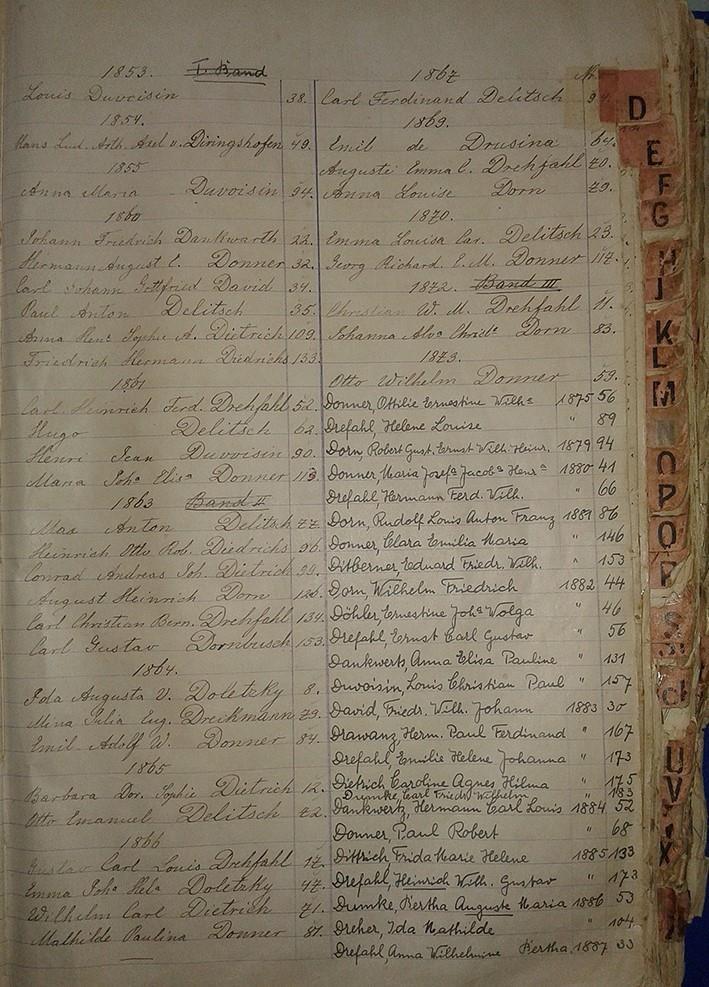 1853. I. Band
Louis Duvoisin 38.
1854.
Hans Lud. Arth. Axel v. Diringshofen 49.
1855
Anna Maria Duvoisin 94.
1860
Johann Friedrich Dankwarth 22.
Hermann August C. Donner 32.
Carl Johann Gottfried David 34.
Paul Anton Delitsch 35.
Anna Hen: Sophie A. Dietrich 109.
Friedrich Hermann Diedrichs 133.
1861
Carl Heinrich Ferd. Drehfahl 52.
Hugo Delitsch 62.
Henri Jean Duvoisin 90.
Maria Joha Elisa Donner 113.
1863 Band II
Max Anton Delitsch 77.
Heinrich Otto Rob. Diedrichs 96.
Conrad Andreas Joh. Dietrich 99.
August Heinrich Dorn 126.
Carl Christian Bern. Drehfahl 134.
Carl Gustav Dornbusch 153.
1864.
Ida Augusta V. Doletzky 8.
Mina Julia Eug. Dreikmann 79.
Emil Adolf W. Donner 84.
1865
Barbara Dor. Sophie Dietrich 12.
Otto Emanuel Delitsch 72.
1866
Gustav Carl Louis Drehfahl 17.
Emma Joha Hela Doletzky 47.
Wilhelm Carl Dietrich 71.
Mathilde Paulina Donner 87.
1867 Nr.
Carl Ferdinand Delitsch
1869.
Emil de Drusina 64.
Auguste Emma C. Drehfahl 70.
Anna Louise Dorn 79.
1870.
Emma Louisa Car. Delitsch 23.
Georg Richard. E. M. Donner 117.
1872. Band III
Christian W. M. Drehfahl 11.
Johanna Alva Christa Dorn 83.
1873.
Otto Wilhelm Donner 59.
Donner, Ottilie Ernestine Wilha 1875 56
Drefahl, Helene Louise " 89
Dorn, Robert Gust. Ernst Wilh. Heinr. 1879 94
Donner, Maria Josefa Jacoba Henra 1880 41
Drefahl, Hermann Ferd. Wilh. " 66
Dorn, Rudolf Louis Anton Franz 1881 86
Donner, Clara Emilia Maria " 146
Ditberner, Eduard Friedr. Wilh. " 153
Dorn, Wilhelm Friedrich 1882 44
Döhler, Ernestine Joha Wolga " 46
Drefahl, Ernst Carl Gustav " 56
Dankwerts, Anna Elisa Pauline " 131
Duvoisin, Louis Christian Paul " 157
David, Friedr. Wilh. Johann 1883 30
Drawanz, Herm. Paul Ferdinand " 167
Drefahl, Emilie Helene Johanna " 173
Dietrich Caroline Agnes Hilma " 175
Dumke, Carl Friedr. Wilhelm " 183
Dankwertz, Hermann Carl Louis 1884 52
Donner, Paul Robert " 68
Dittrich, Frida Marie Helene 1885 133
Drefahl, Heinrich Wilh. Gustav " 173
Dumke, Bertha Auguste Maria 1886 53
Dreher, Ida Mathilde " 104
Drefahl, Anna Wilhelmine Bertha. 1887 33
D
E
F
G
H
J
K
L
M
N
O
P
Q
R
S
U
V
X